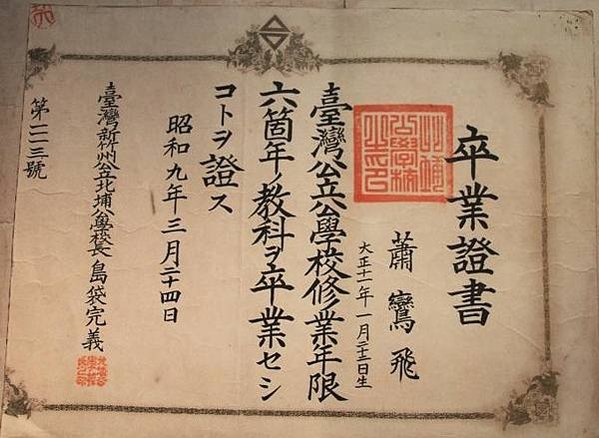 卒業證書
蕭鸞飛
大正十一年一月二十二日生
臺灣公立公學校修業年限
六箇年ノ教科ヲ卒業セシ
コトヲ證ス
昭和九年三月二十四日
臺灣新竹州公立北埔公學校長島袋完義
第二一三號